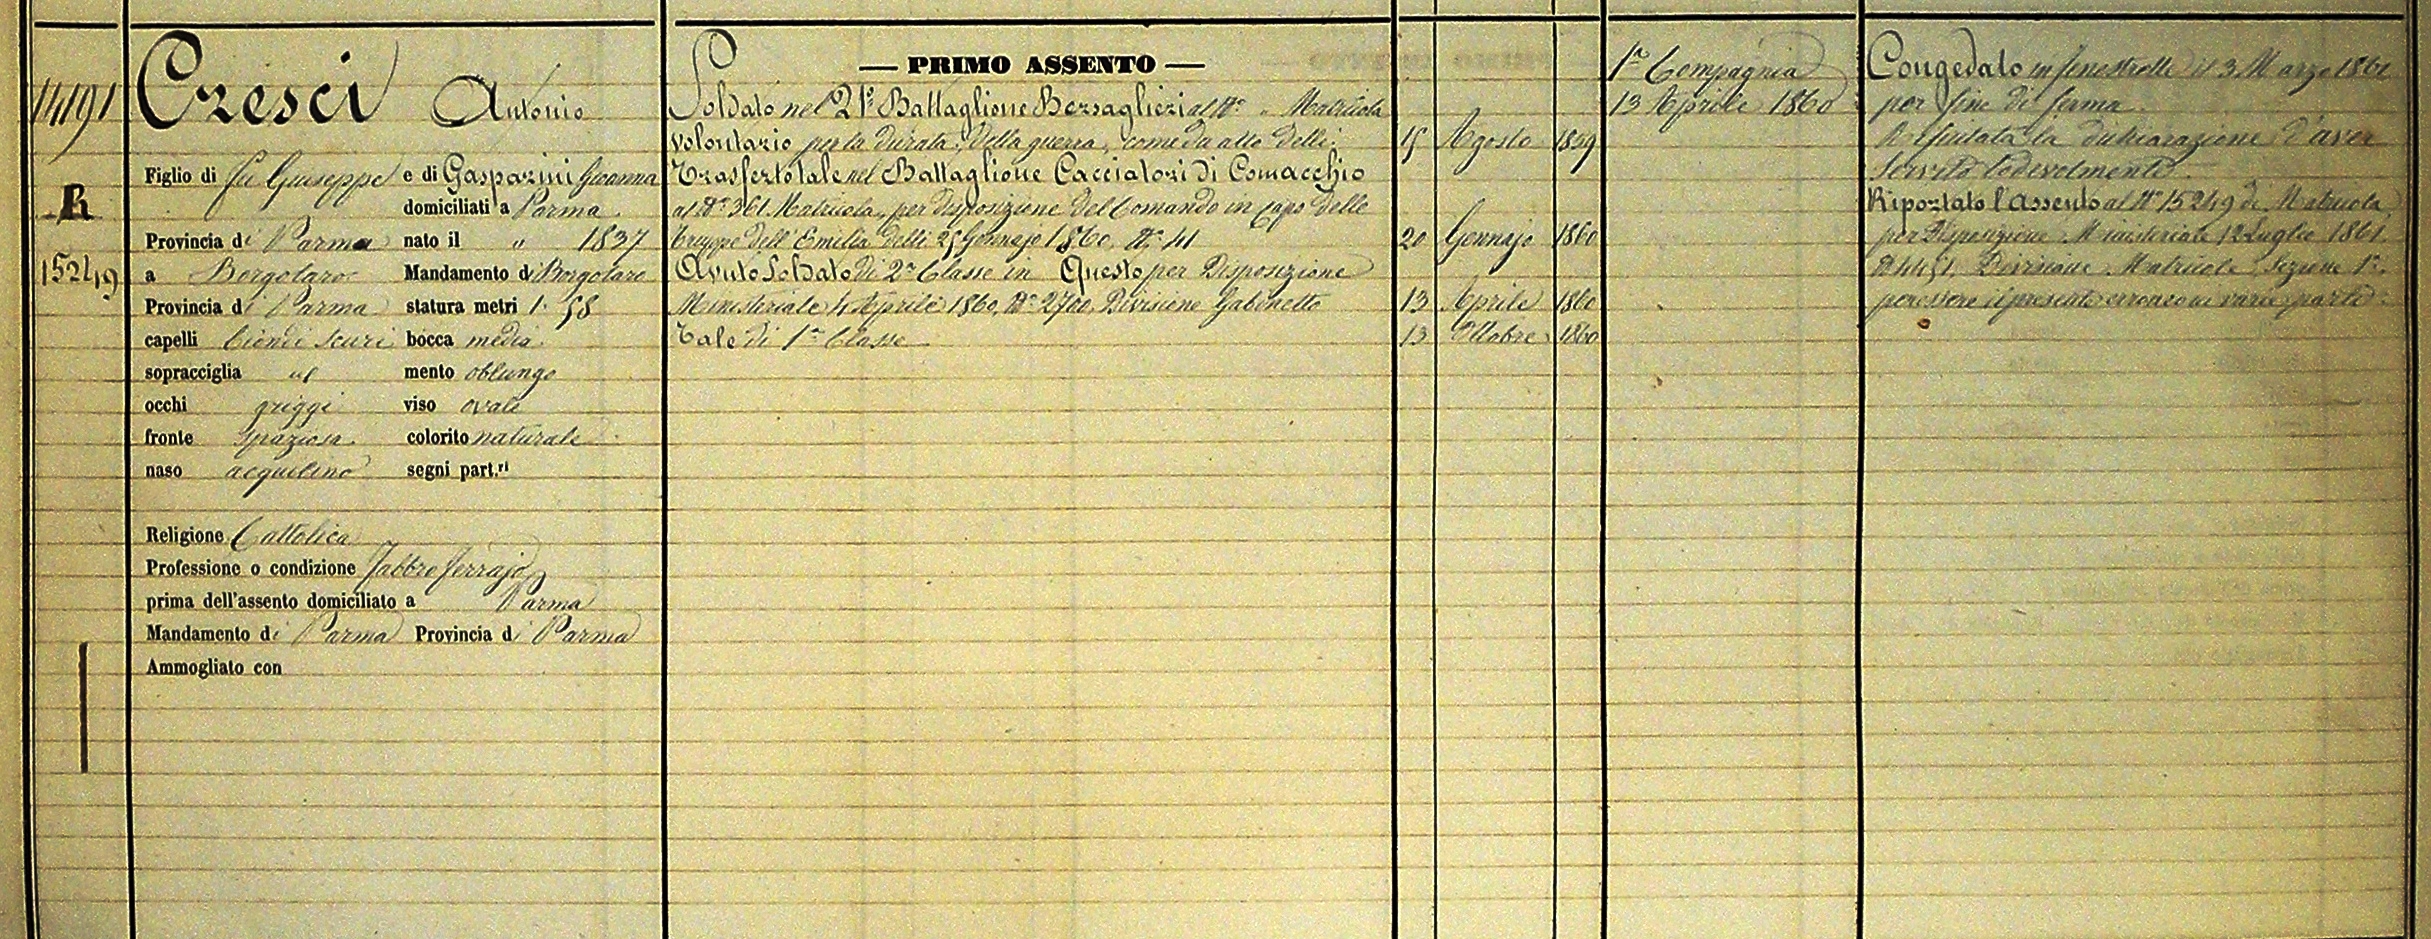 14191
R
15249
Cresci Antonio
Figlio di fu Giuseppe e di Gasparini Giovanna
domiciliati a Parma
Provincia di Parma nato il " 1837
a Borgotaro Mandamento di Borgotaro
Provincia di Parma statura metri 1. 58
capelli biondi scuri bocca media
sopracciglia id mento oblungo
occhi griggi viso ovale
fronte spaziosa colorito naturale
naso acquilino segni part.ri
Religione Cattolica
Professione o condizione Fabbro ferrajo
prima dell'assento domiciliato a Parma
Mandamento di Parma Provincia di Parma
Ammogliato con
— PRIMO ASSENTO —
Soldato nel 21° Battaglione Bersaglieri al N° " Matricola
volontario per la durata della guerra, come da atto delli 15 Agosto 1859
Trasferto tale nel Battaglione Cacciatori di Comacchio
al N° 361 Matricola, per disposizione del Comando in Capo delle
truppe dell'Emilia delli 25 Gennajo 1860, N° 41 20 Gennajo 1860
Avuto Soldato di 2a Classe in Questo per Disposizione
Ministeriale 4 Aprile 1860, N° 2700, Divisione Gabinetto 13 Aprile 1860
Tale di 1a Classe 13 Ottobre 1860
1a Compagnia
13 Aprile 1860
Congedato in Fenestrelle il 3 Marzo 1861
per fine di ferma
Rifiutata la dichiarazione d'aver
Servito lodevolmente
Riportato l'Assento al N° 15249 di Matricola
per Disposizione Ministeriale 12 Luglio 1861
Divisione Matricole, Sezione 1a.
per essere il presente erroneo in varie parti.